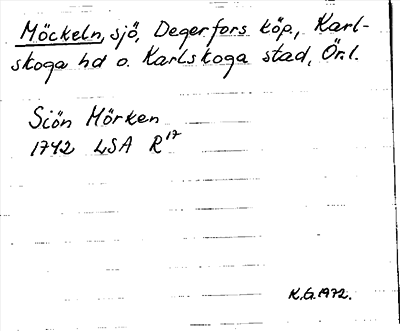 Möckeln, sjö, Degerfors köp., Karl-
skoga hd o. Karlskoga stad, Ör.l.
Siön Mörken
1742 LSA R17
K.G.1972.